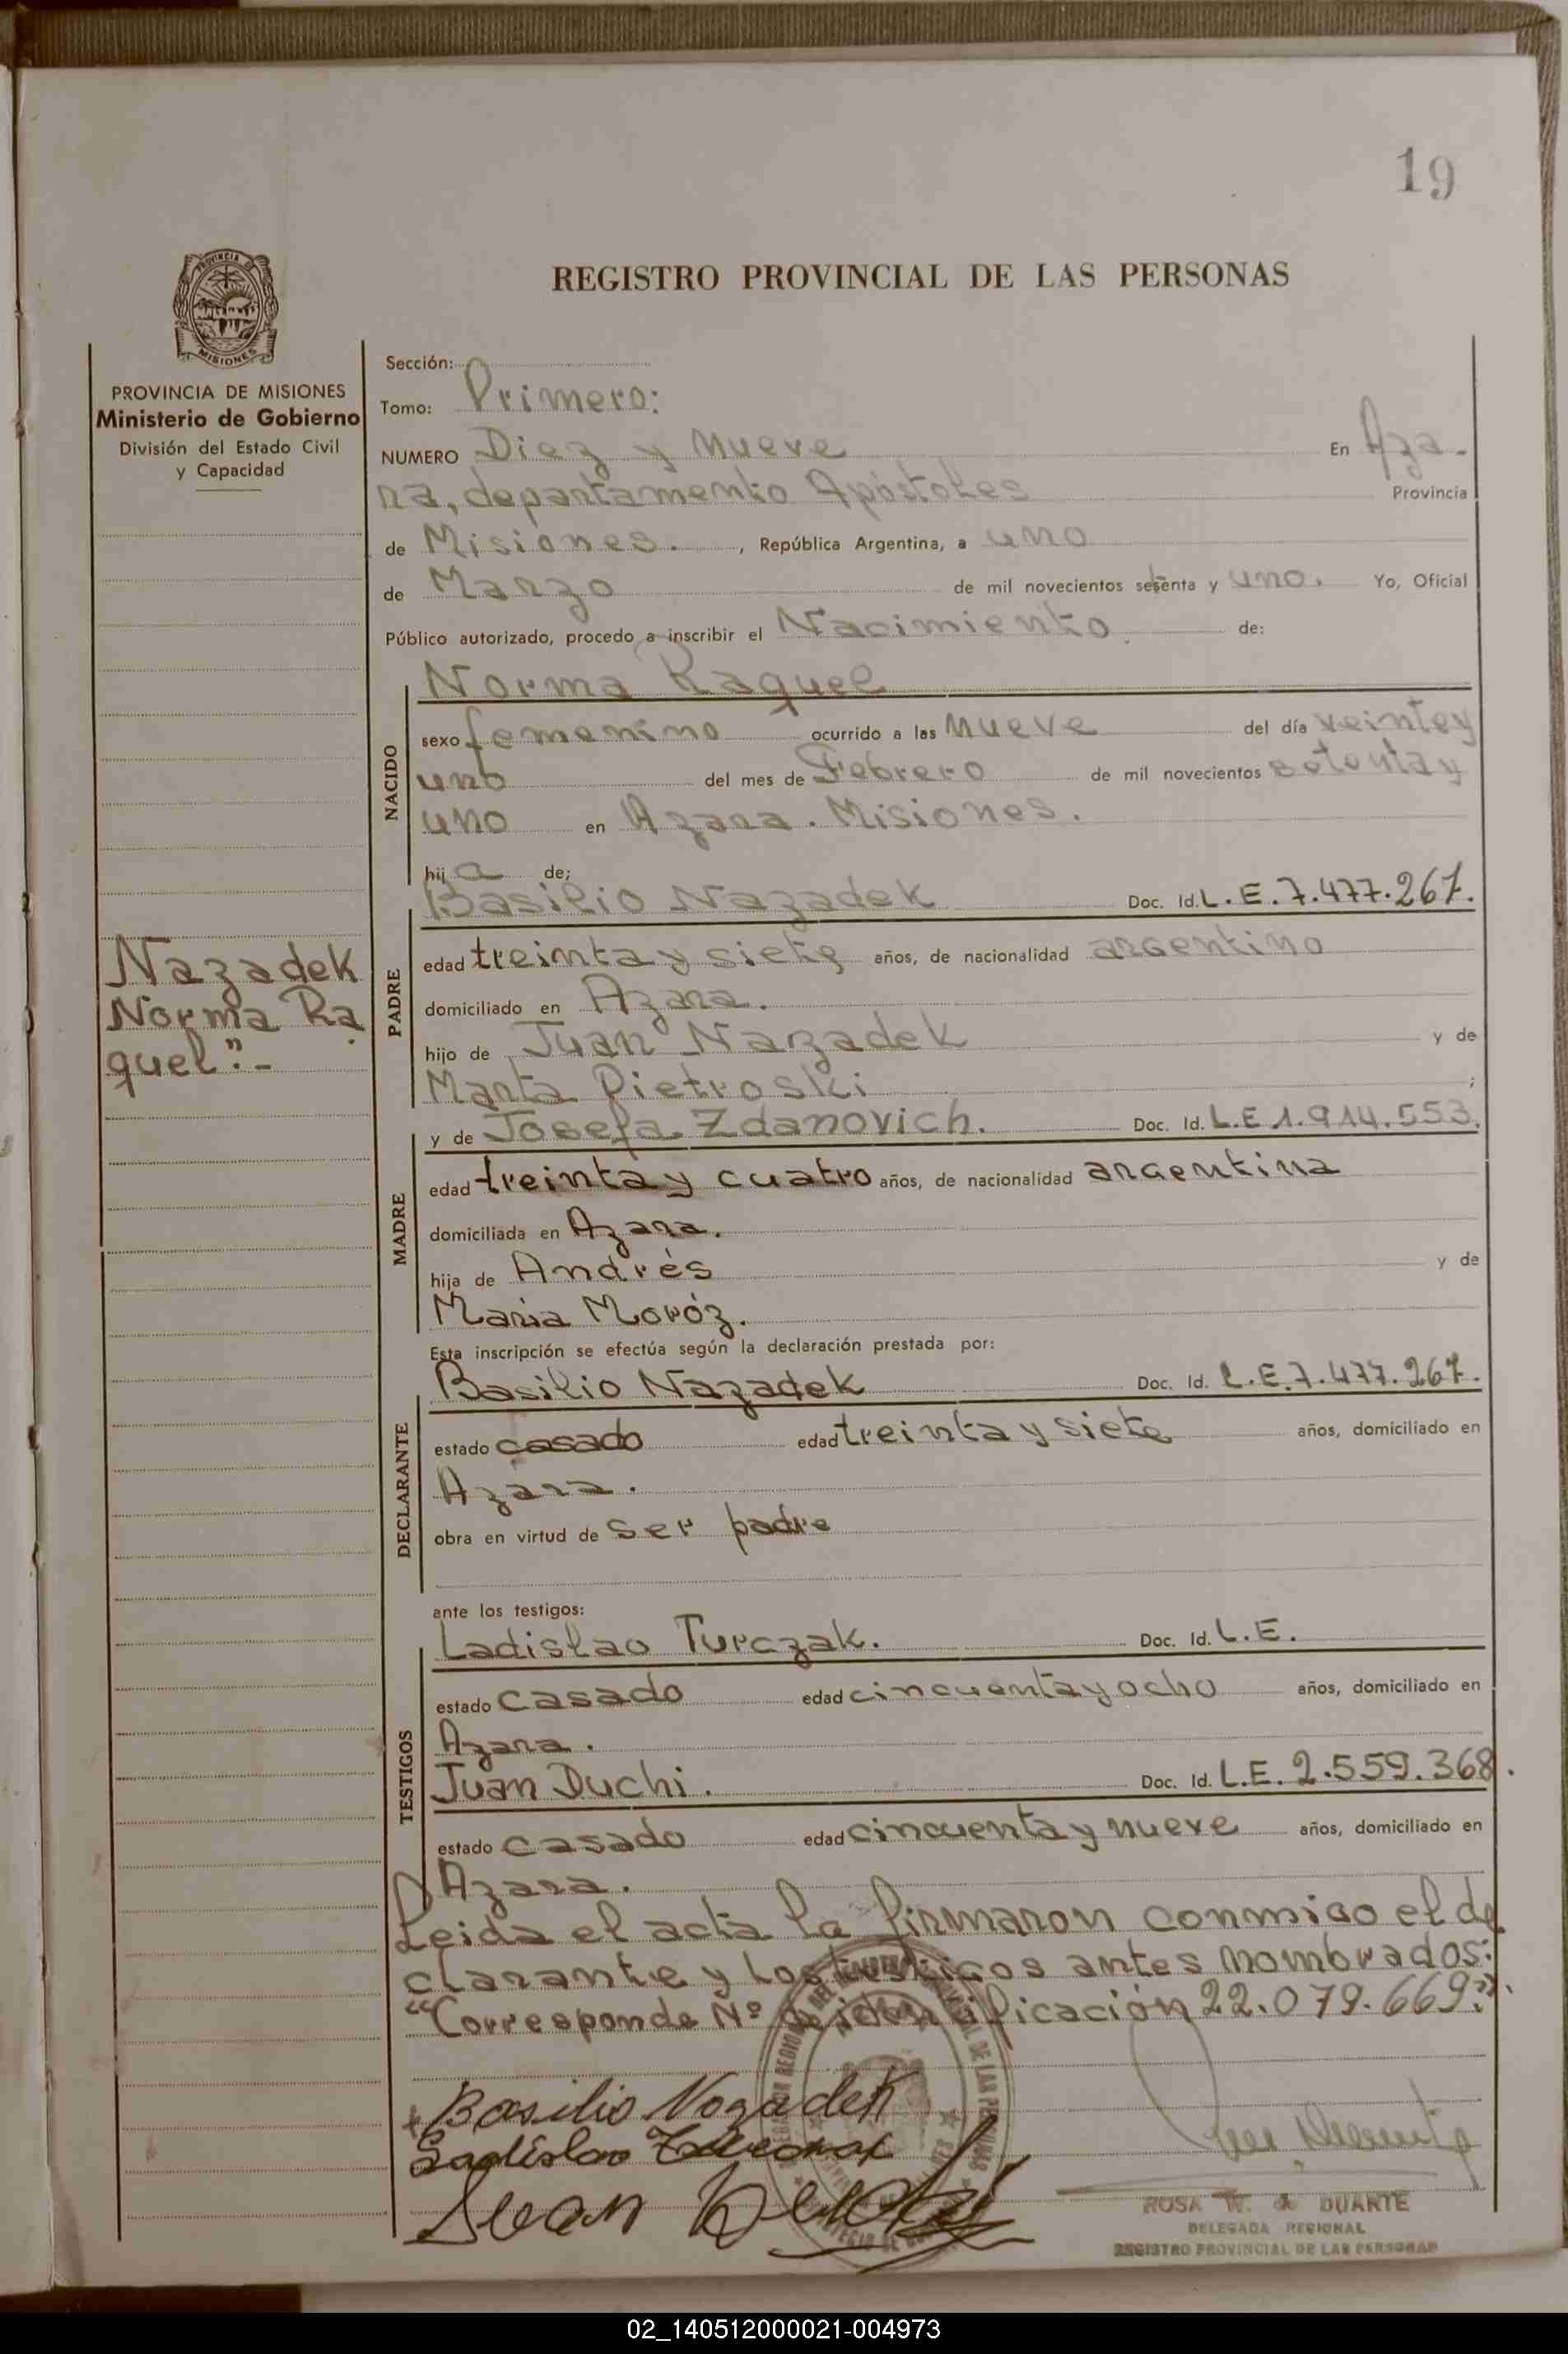 19
REGISTRO PROVINCIAL DE LAS PERSONAS
PROVINCIA DE MISIONES
Ministerio de Gobierno
División del Estado Civil
y Capacidad
Sección:
Tomo: Primero:
NUMERO Diez y Nueve En Aza-
ra, departamento Apóstoles Provincia
de Misiones. , República Argentina, a uno
de Marzo de mil novecientos setenta y uno. Yo, Oficial
Público autorizado, procedo a inscribir el Nacimiento de:
Norma Raquel
NACIDO
sexo femenino ocurrido a las nueve del día veintey
uno del mes de Febrero de mil novecientos setentay
uno en Azara. Misiones.
hij a de;
Basilio Nazadek Doc. Id. L.E. 7.477.267.
PADRE
edad treinta y siete años, de nacionalidad argentino
domiciliado en Azara.
hijo de Juan Nazadek y de
Marta Pietroski ;
Nazadek
Norma Ra
quel".-
y de Josefa Zdanovich. Doc. Id. L.E 1.914.553.
MADRE
edad treinta y cuatro años, de nacionalidad argentina
domiciliada en Azara.
hija de Andrés y de
María Moróz.
Esta inscripción se efectúa según la declaración prestada por:
Basilio Nazadek Doc. Id. L.E. 7.477.267.
DECLARANTE
estado casado edad treinta y siete años, domiciliado en
Azara.
obra en virtud de ser padre
ante los testigos:
Ladislao Turczak. Doc. Id. L.E.
TESTIGOS
estado casado edad cincuenta y ocho años, domiciliado en
Azara.
Juan Duchi. Doc. Id. L.E. 2.559.368.
estado casado edad cincuenta y nueve años, domiciliado en
Azara.
Leida el acta la firmaron conmigo el de
clarante y los testigos antes nombrados:
"Corresponde Nº de identificación 22.079.669".
Basilio Nazadek
Ladislao
Juan Duchi
ROSA W. de DUARTE
DELEGADA REGIONAL
REGISTRO PROVINCIAL DE LAS PERSONAS
02_140512000021-004973